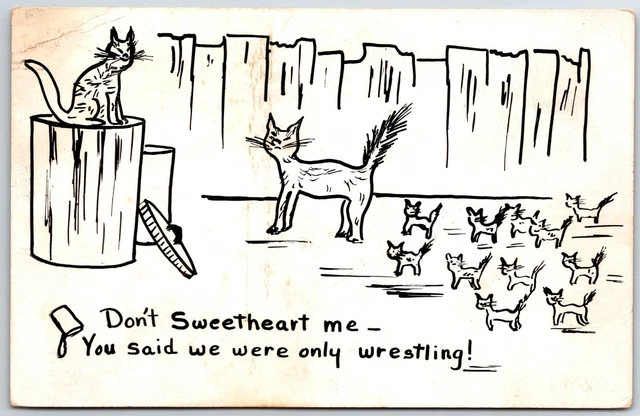 Don't Sweetheart me —
You said we were only wrestling!